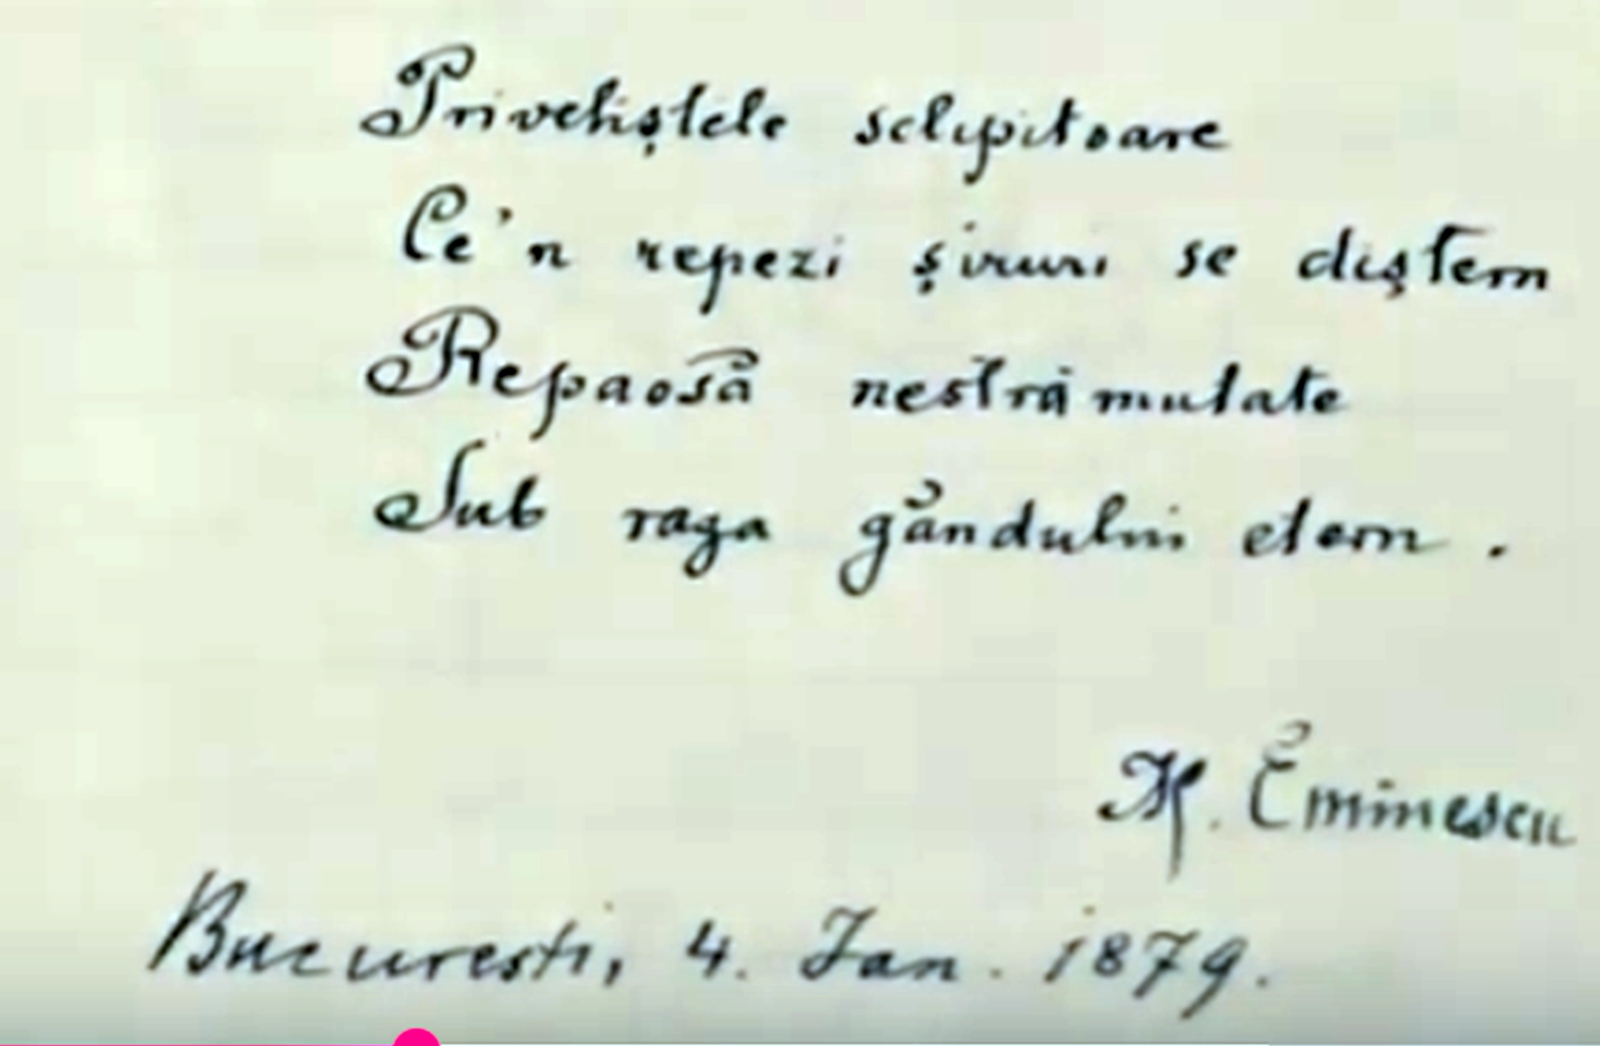 Priveliștele sclipitoare
Ce'n repezi șiruri se diștern
Repaosă nestrămutate
Sub raza gândului etern.
M. Eminescu
Bucuresti, 4. Jan. 1879.